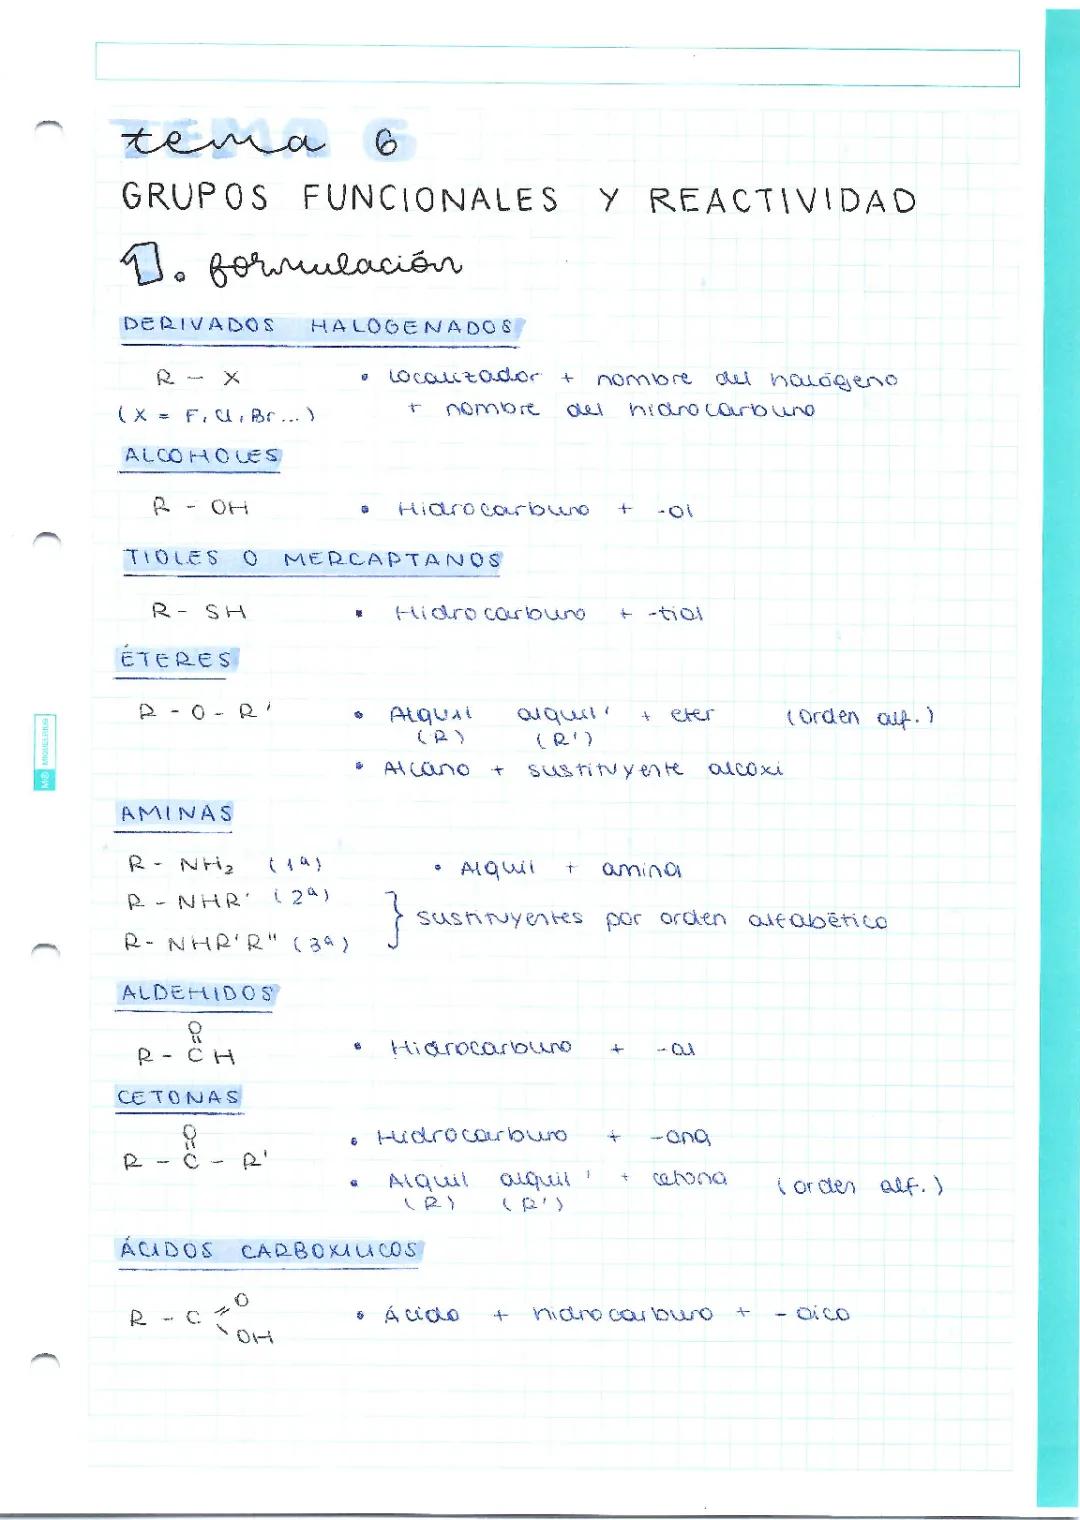 tema 6
GRUPOS FUNCIONALES Y REACTIVIDAD
1. formulación
DERIVADOS HALOGENADOS
R - X • Localizador + nombre del halógeno
(X = F, Cl, Br...) + nombre del hidrocarburo
ALCOHOLES
R - OH • Hidrocarburo + -ol
TIOLES O MERCAPTANOS
R - SH • Hidrocarburo + -tiol
ÉTERES
R - O - R' • Alquil alquil' + eter (orden alf.)
(R) (R')
• Alcano + sustituyente alcoxi
AMINAS
R - NH₂ (1ª) • Alquil + amina
R - NHR' (2ª)
} sustituyentes por orden alfabético
R - NHR'R" (3ª)
ALDEHIDOS
O
R - CH • Hidrocarburo + -al
CETONAS
O
R - C - R' • Hidrocarburo + -ona
• Alquil alquil' + cetona (orden alf.)
(R) (R')
ÁCIDOS CARBOXILICOS
O
R - C • Ácido + hidrocarburo + -oico
OH
MIQUELRIUS